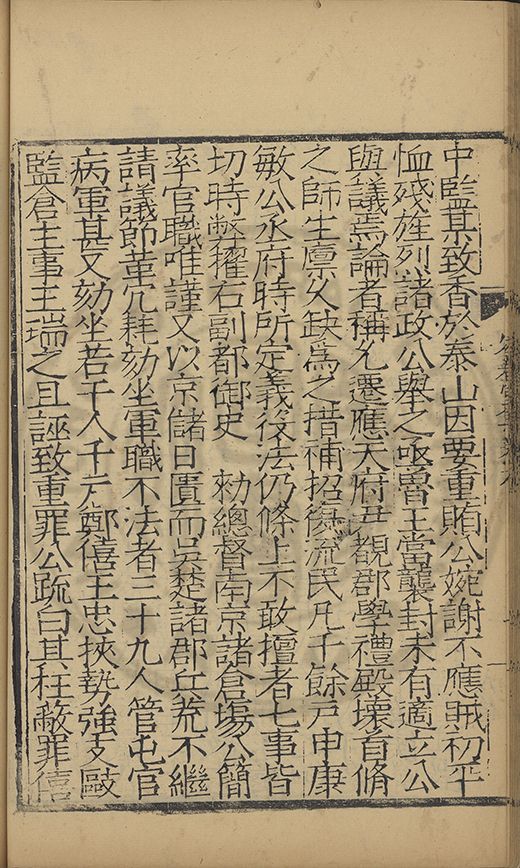 中監某致香於泰山因要重賄公婉謝不應賊初平
恤殘旌烈諸政公舉之亟魯王當襲封未有適立公
與議焉論者稱允遷應天府丑覩郡學禮殿壞首脩
之師生廪久缺爲之措補招復流民凡千餘戸申康
敏公丞府時所定義役法仍條上不敢擅者七事皆
切時弊擢右副都御史 勑總督南京諸倉塲公簡
率官職唯謹又以京儲日匱而吳楚諸郡丘荒不繼
請議節革冗耗劾坐軍職不法者三十九人管屯官
病軍甚又劾坐若千人千户鄭僖王忠挾勢強支毆
監倉主事王瑞之且誣致重罪公疏白其枉蔽罪僖